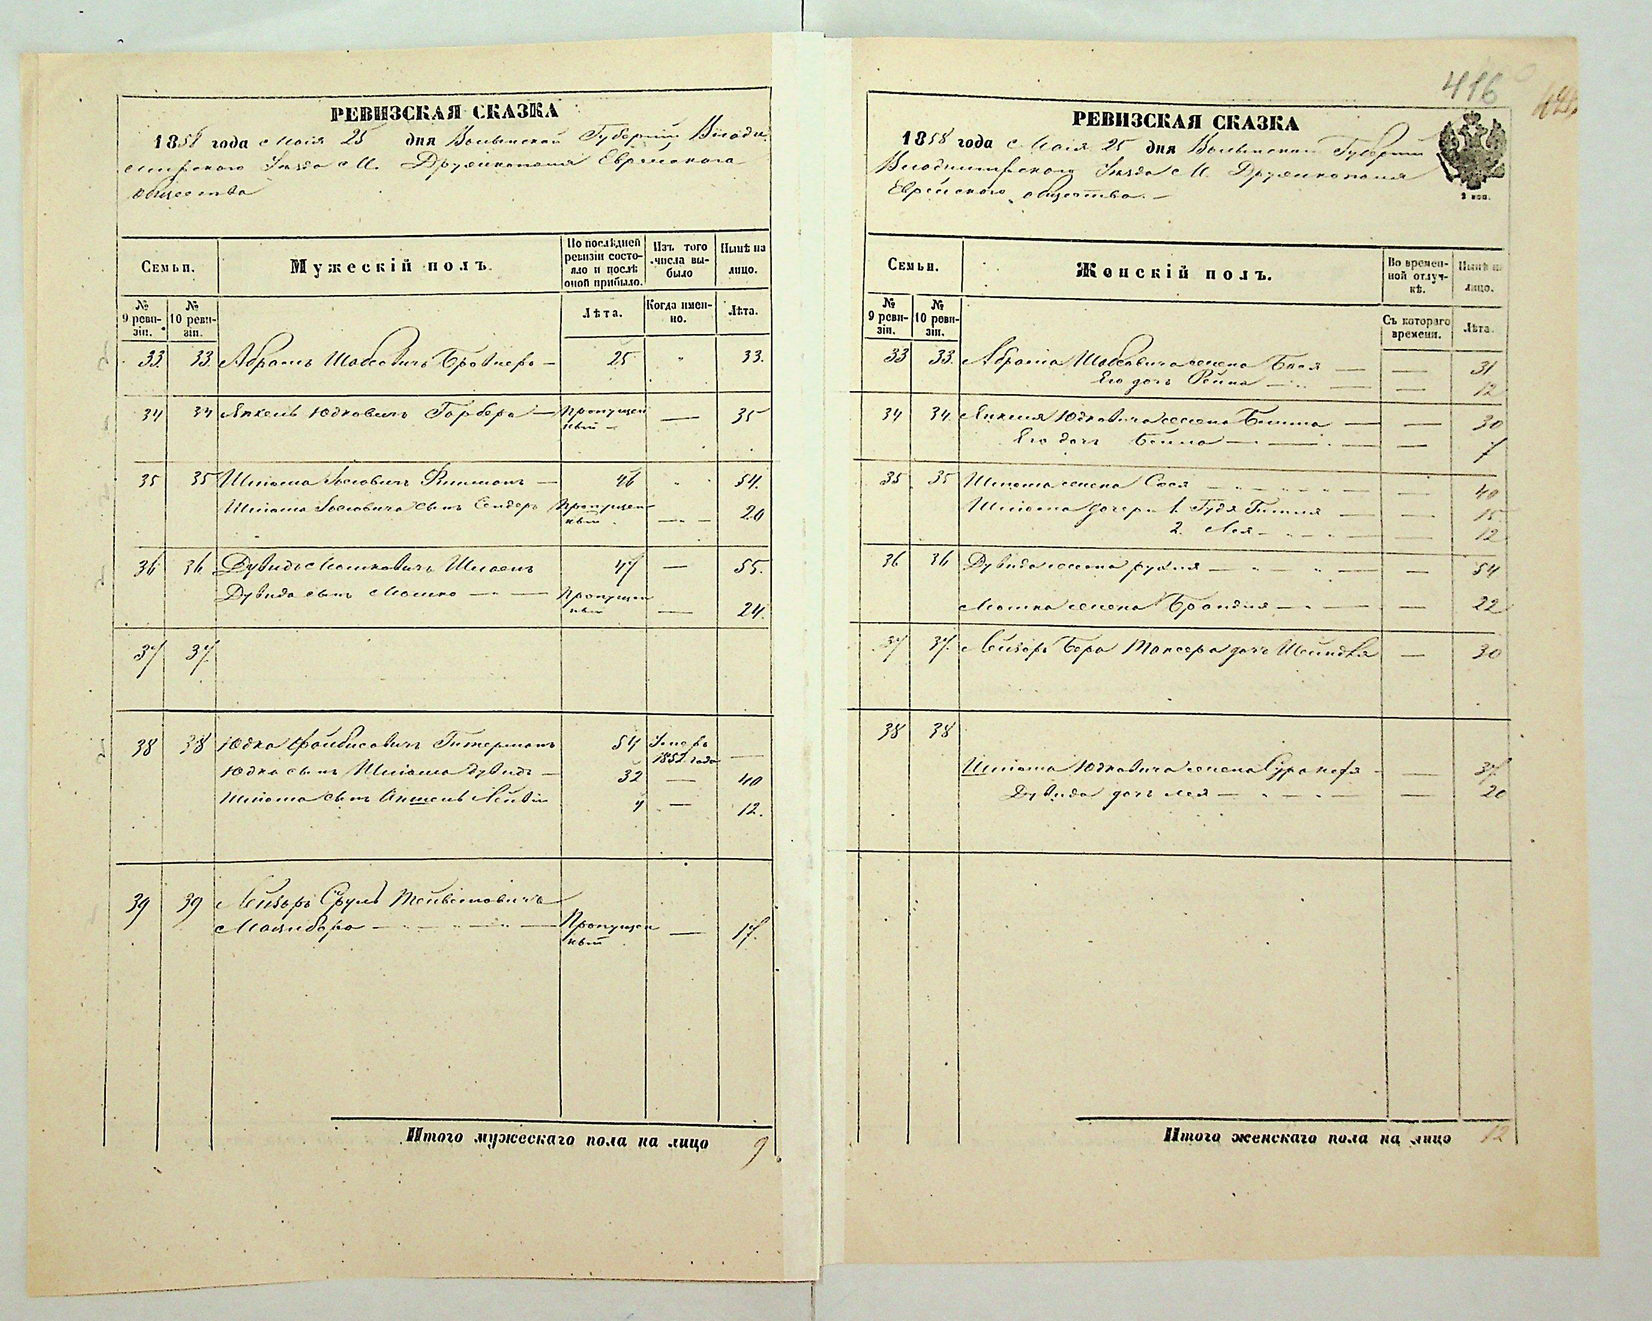 РЕВИЗСКАЯ СКАЗКА
1858 года Маія 25 дня Волынской Губерніи Влади
мирскаго Уѣзда М. Дружкополя Еврейскаго
общества
Семьи.
Мужескій полъ.
По послѣдней ревизіи состояло и послѣ оной прибыло.
Изъ того числа выбыло
Нынѣ на лицо.
№ 9 ревизіи.
№ 10 ревизіи.
Лѣта.
Когда именно.
Лѣта.
33 33 Абрамъ Шабсовичъ — 25 „ 33.
34 34 Янкель Юдковичъ Гарберъ — Пропущен
ный — 35
35 35 Шліома Іосіовичъ — 46 „ 54.
Шліома Іосіовича сынъ Сендеръ Пропущен
ный — 20
36 36 Дувидъ Мошковичъ 47 — 55.
Дувида сынъ Мошко — Пропущен
ный — 24.
37 37.
38 38 Юдка Файбисовичъ Гитерманъ 54 Умеръ
1852 года —
Юдка сынъ Шліома Дувидъ — 32 — 40
Шліома сынъ Лейвы 4 — 12.
39 39 Лейзоръ Сруль
Пропущен
ный — 17.
Итого мужескаго пола на лицо 9
416
РЕВИЗСКАЯ СКАЗКА
1858 года Маія 25 дня Волынской Губерніи
Владимирскаго Уѣзда М. Дружкополя
Еврейскаго общества. —
2 коп.
Семьи.
Женскій полъ.
Во временной отлучкѣ.
Нынѣ на лицо.
№ 9 ревизіи.
№ 10 ревизіи.
Съ котораго времени.
Лѣта.
33 33. Абрама Шабсовича жена Бася — — 31
Его дочь Рейза — — 12
34 34. Янкеля Юдковича жена — — 30
Его дочь Бейла — — 7
35 35 Шліома жена Сося — — 40
Шліома дочери 1. Гудя — — 15
2. Лея — — 12
36 36 Дувида жена Рухля — — 54
Мошка жена Брандля — — 22
37 37. Лейзоръ Бера дочь Шейндля — 30
38 38
Шліома Юдковича жена Сура — — 37.
Дувида дочь Лея — — 20
Итого женскаго пола на лицо 12